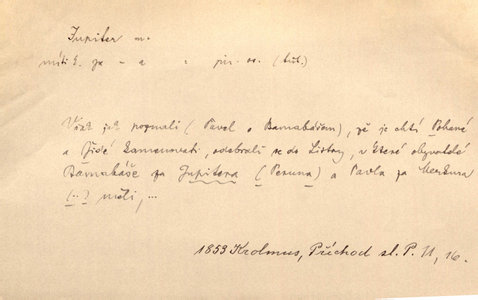 Jupiter m.
míti k. za - a : jm. os. (týt.)
Však jak poznali (Pavel s Barnabášem), že je chtí Pohané
a Židé kamenovati, odebrali se do Listry, v které obyvatelé
Barnabáše za Jupitera (Peruna) a Pavla za Merkura
(..) měli, ...
1853 Krolmus, Příchod sl. P. 11, 16.